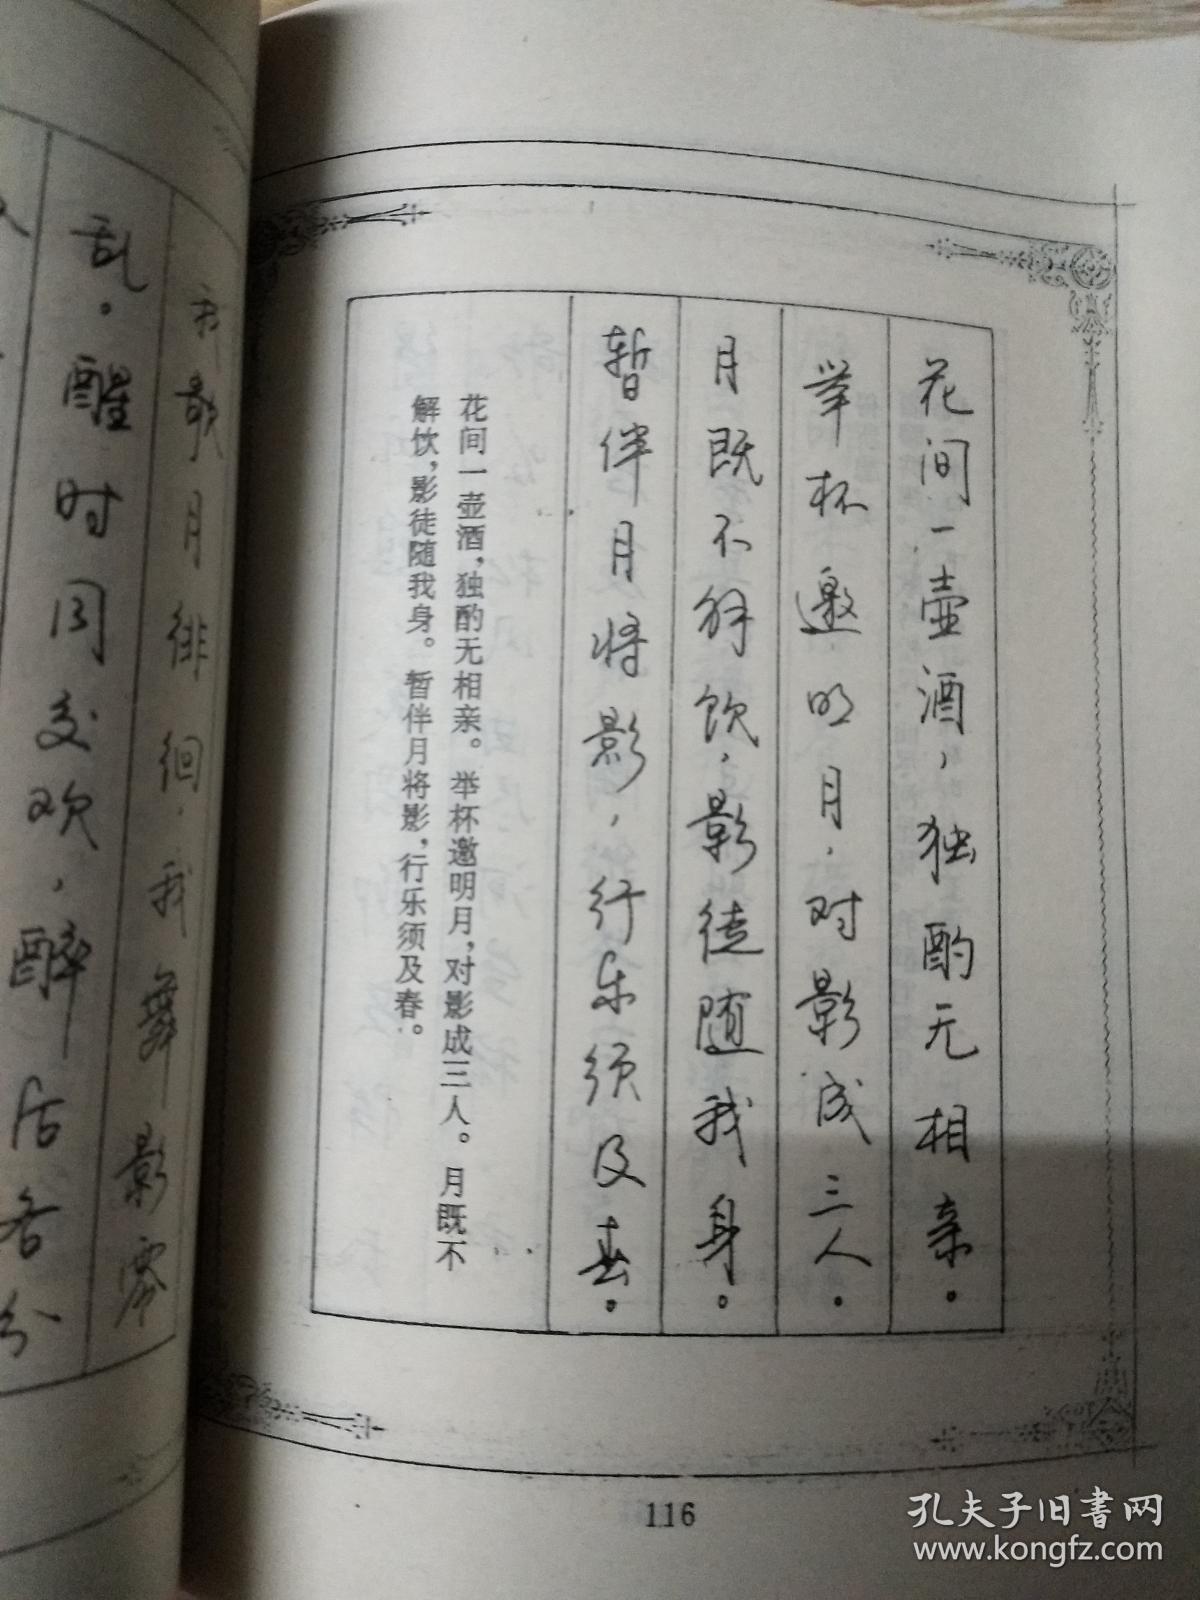 花间一壶酒，独酌无相亲。
举杯邀明月，对影成三人。
月既不解饮，影徒随我身。
暂伴月将影，行乐须及春。
花间一壶酒，独酌无相亲。举杯邀明月，对影成三人。月既不
解饮，影徒随我身。暂伴月将影，行乐须及春。
116
我歌月徘徊，我舞影零
乱。醒时同交欢，醉后各分
孔夫子旧书网
www.kongfz.com